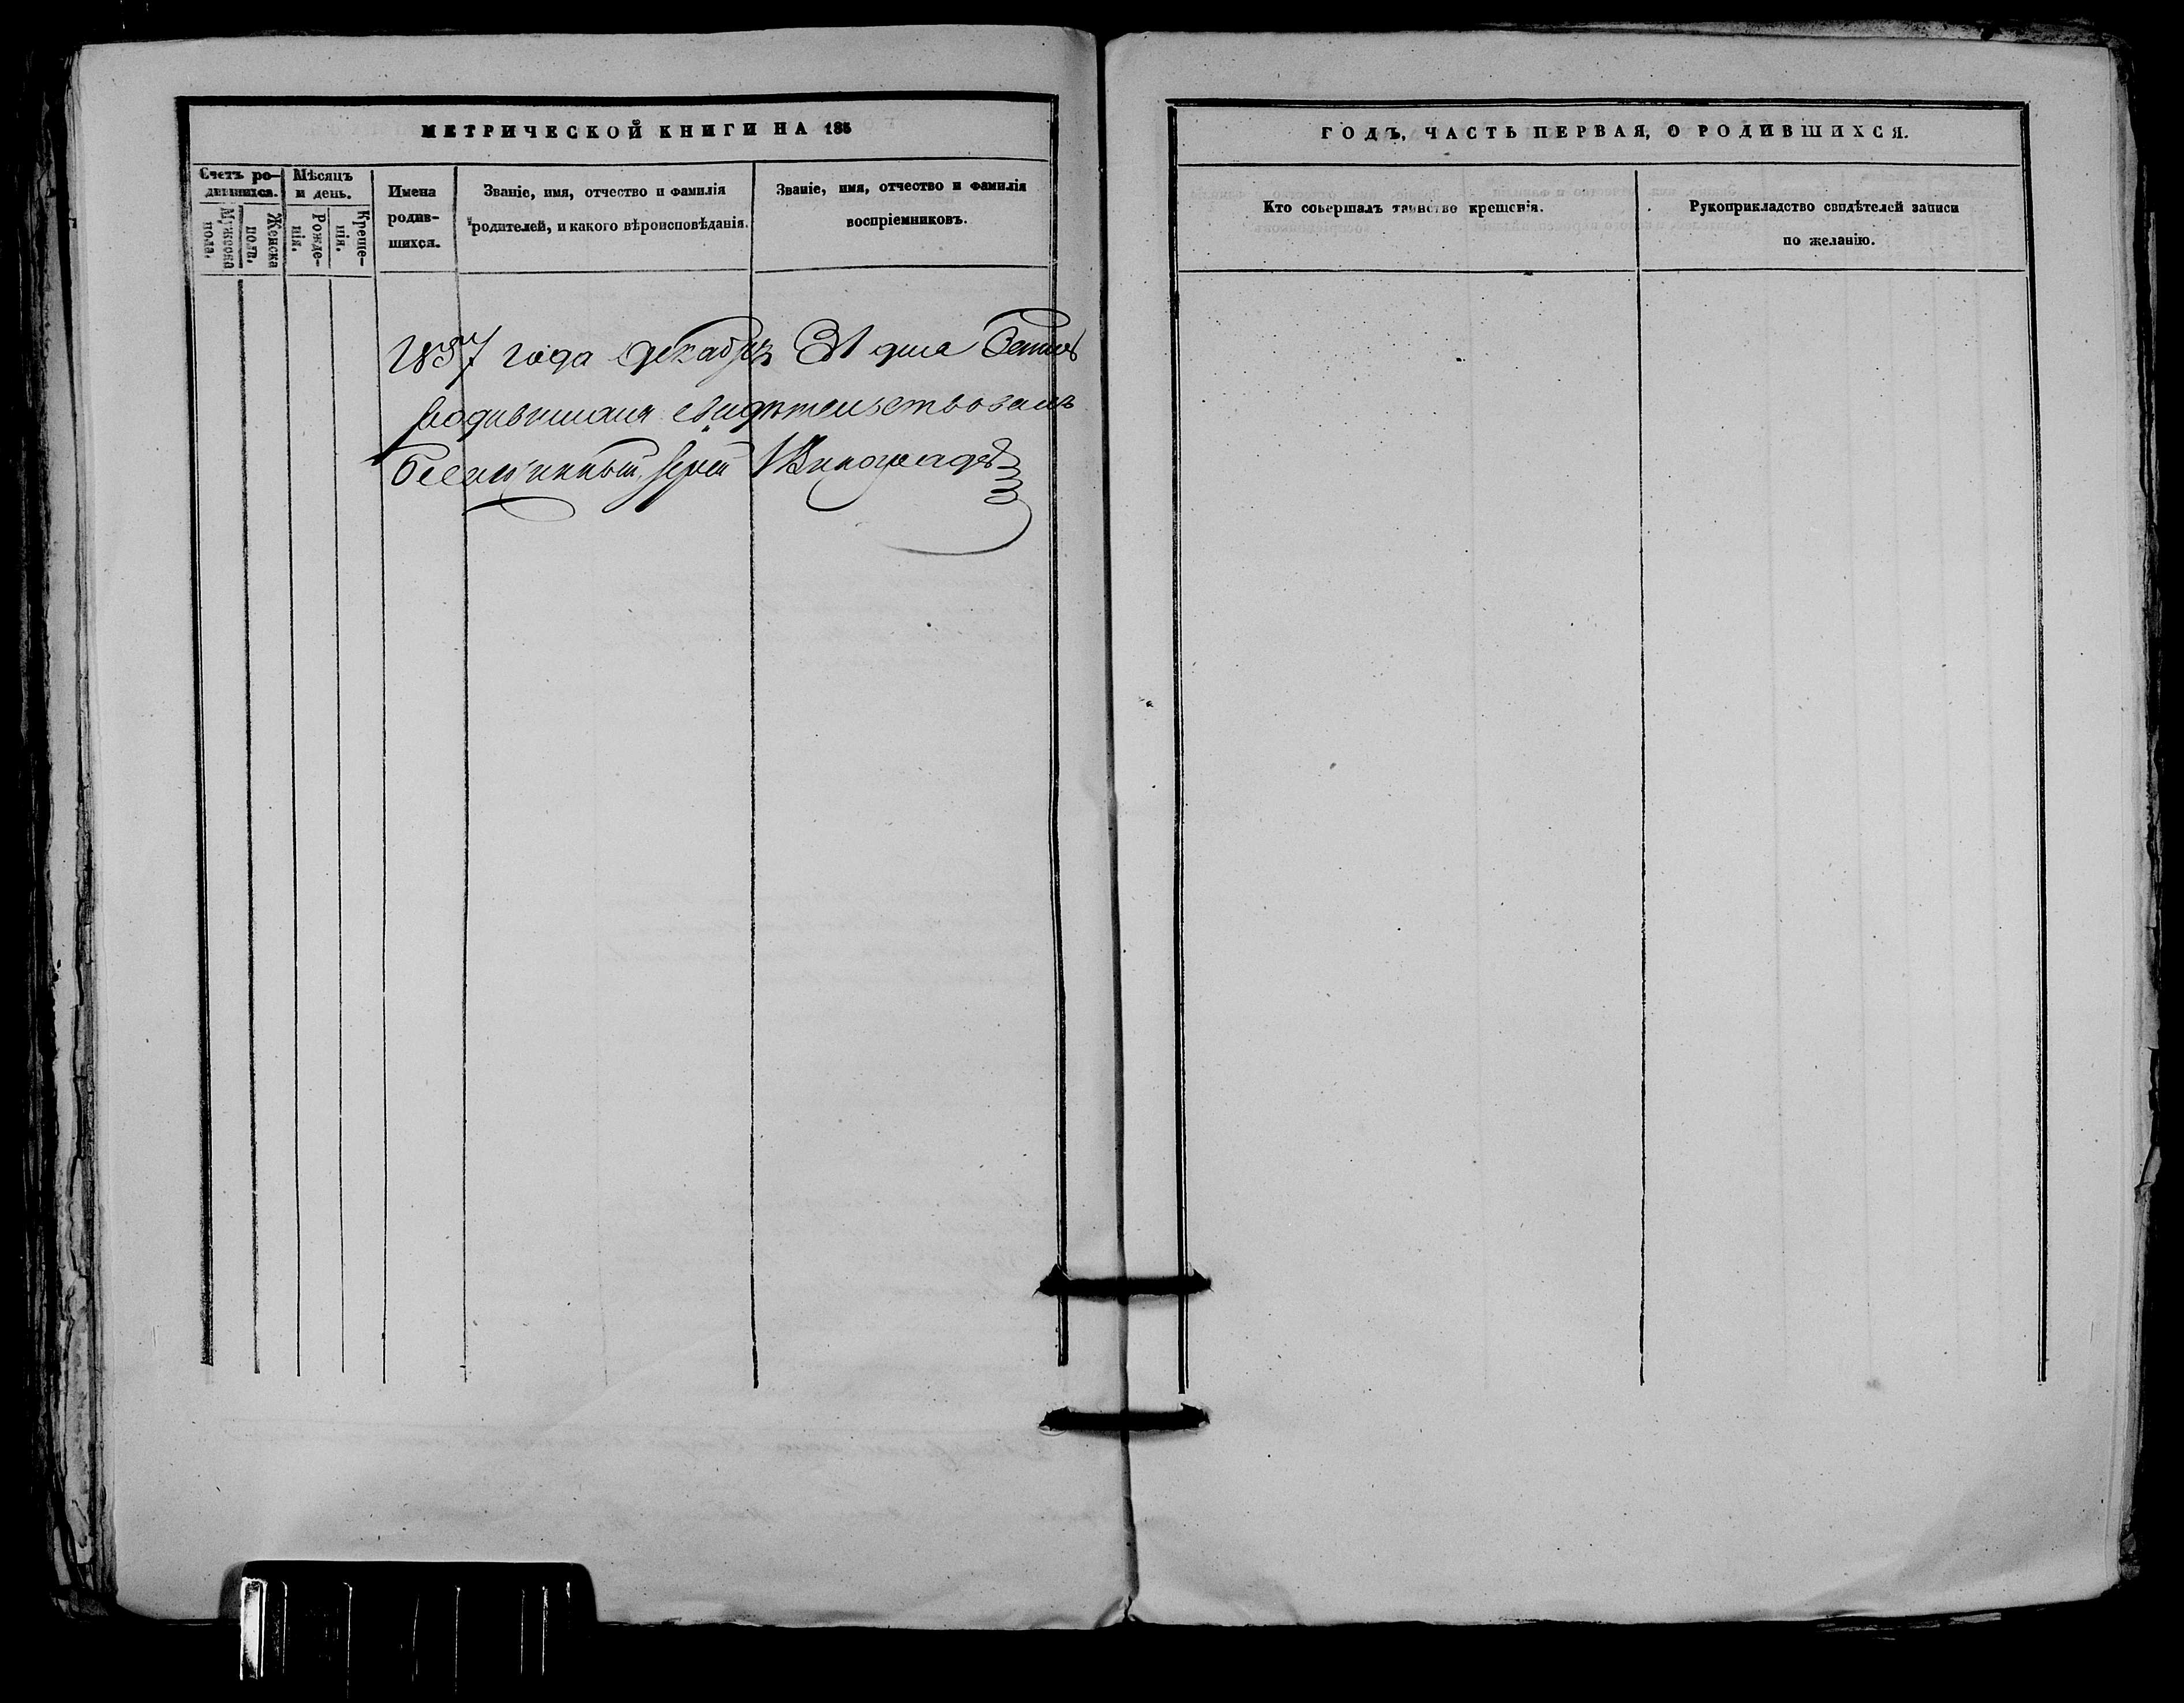 МЕТРИЧЕСКОЙ КНИГИ НА 185
Счетъ ро-
дившихся.
Мужеска
пола.
Женска
пола.
Мѣсяцъ
и день.
Рожде-
нія.
Креще-
нія.
Имена
родив-
шихся.
Званіе, имя, отчество и фамилія
родителей, и какого вѣроисповѣданія.
Званіе, имя, отчество и фамилія
воспріемниковъ.
1857 года декабря 31 дня
родившихся свидѣтельствовалъ
Благочинный Іерей Виноградовъ
ГОДЪ, ЧАСТЬ ПЕРВАЯ, О РОДИВШИХСЯ.
Кто совершалъ таинство крещенія.
Рукоприкладство свидѣтелей записи
по желанію.